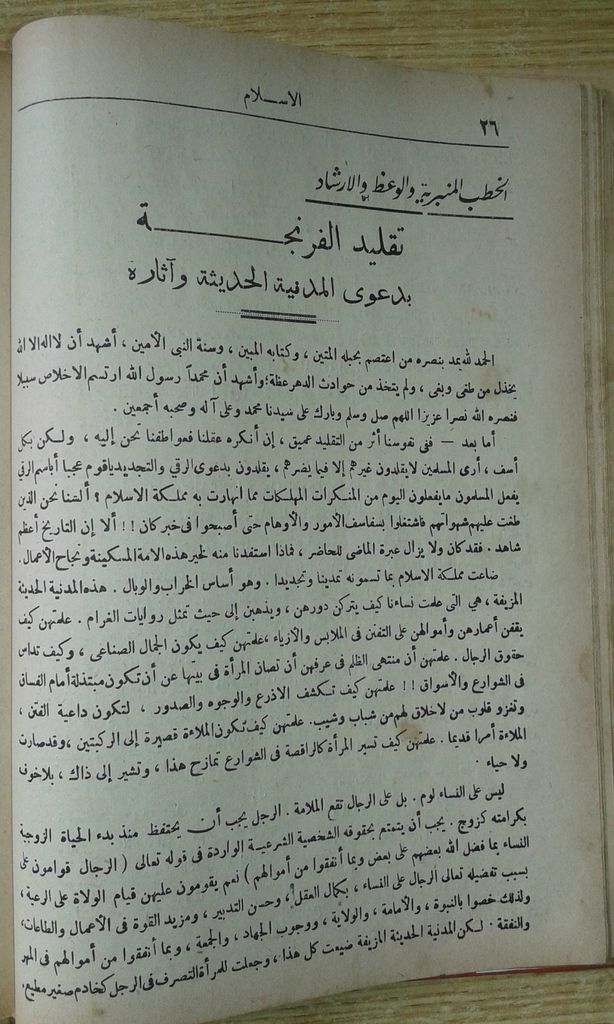 الاسلام
٢٦
الخطب المنبرية والوعظ والارشاد
تقليد الفرنجة
بدعوى المدنية الحديثة وآثاره
الحمد لله يمد بنصره من اعتصم بحبله المتين ، وكتابه المبين ، وسنة النبي الأمين ، أشهد أن لا اله الا الله
يخذل من طغى وبغى ، ولم يتخذ من حوادث الدهر عظة؛ وأشهد أن محمداً رسول الله ارتسم الاخلاص سبيلا
فنصره الله نصرا عزيزا اللهم صل وسلم وبارك على سيدنا محمد وعلى آله وصحبه أجمعين .
أما بعد — ففى نفوسنا أثر من التقليد عميق ، إن أنكره عقلنا فعواطفنا تحن إليه ، ولكن بكل
أسف ، أرى المسلمين لايقلدون غيرهم إلا فيما يضرهم ، يقلدون بدعوى الرقي والتجديد ياقوم عجبا أباسم الرقي
يفعل المسلمون مايفعلون اليوم من المنكرات المهلكات مما انهارت به مملكة الاسلام ؟ ألسنا نحن الذين
طغت عليهم شهواتهم فاشتغلوا بسفاسف الأمور والأوهام حتى أصبحوا فى خبر كان !! ألا إن التاريخ أعظم
شاهد . فقد كان ولا يزال عبرة الماضى للحاضر ، فماذا استفدنا منه لخير هذه الامة المسكينة ونجاح الأعمال .
ضاعت مملكة الاسلام بما تسمونه تمدينا وتجديدا . وهو أساس الخراب والوبال . هذه المدنية الحديثة
المزيفة ، هى التى علمت نساءنا كيف يتركن دورهن ، ويذهبن إلى حيث تمثل روايات الغرام . علمتهن كيف
يقفن أعمارهن وأموالهن على التفنن فى الملابس والازياء ، علمتهن كيف يكون الجمال الصناعى ، وكيف تداس
حقوق الرجال . علمتهن أن منتهى الظلم فى عرفهن أن تصان المرأة فى بيتها عن أن تكون مبتذلة أمام الفساق
فى الشوارع والأسواق !! علمتهن كيف تكشف الاذرع والوجوه والصدور ، لتكون داعية الفتن ،
وتغزو قلوب من لاخلاق لهم من شباب وشيب . علمتهن كيف تكون الملاءة قصيرة إلى الركبتين ، وقد صارت
الملاءة أمرا قديما . علمتهن كيف تسير المرأة كالراقصة فى الشوارع تمازح هذا ، وتشير إلى ذاك ، بلا خوف
ولا حياء .
ليس على النساء لوم . بل على الرجال تقع الملامة . الرجل يجب أن يحتفظ منذ بدء الحياة الزوجية
بكرامته كزوج . يجب أن يتمتع بحقوقه الشخصية الشرعية الواردة فى قوله تعالى ( الرجال قوامون على
النساء بما فضل الله بعضهم على بعض وبما أنفقوا من أموالهم ) نعم يقومون عليهن قيام الولاة على الرعية ،
بسبب تفضيله تعالى الرجال على النساء ، بكمال العقل ، وحسن التدبير ، ومزيد القوة فى الأعمال والطاعات ،
ولذلك خصوا بالنبوة ، والأمامة ، والولاية ، ووجوب الجهاد ، والجمعة ، وبما أنفقوا من أموالهم فى المهر
والنفقة . لكن المدنية الحديثة المزيفة ضيعت كل هذا ، وجعلت للمرأة التصرف فى الرجل كخادم صغير مطيع .